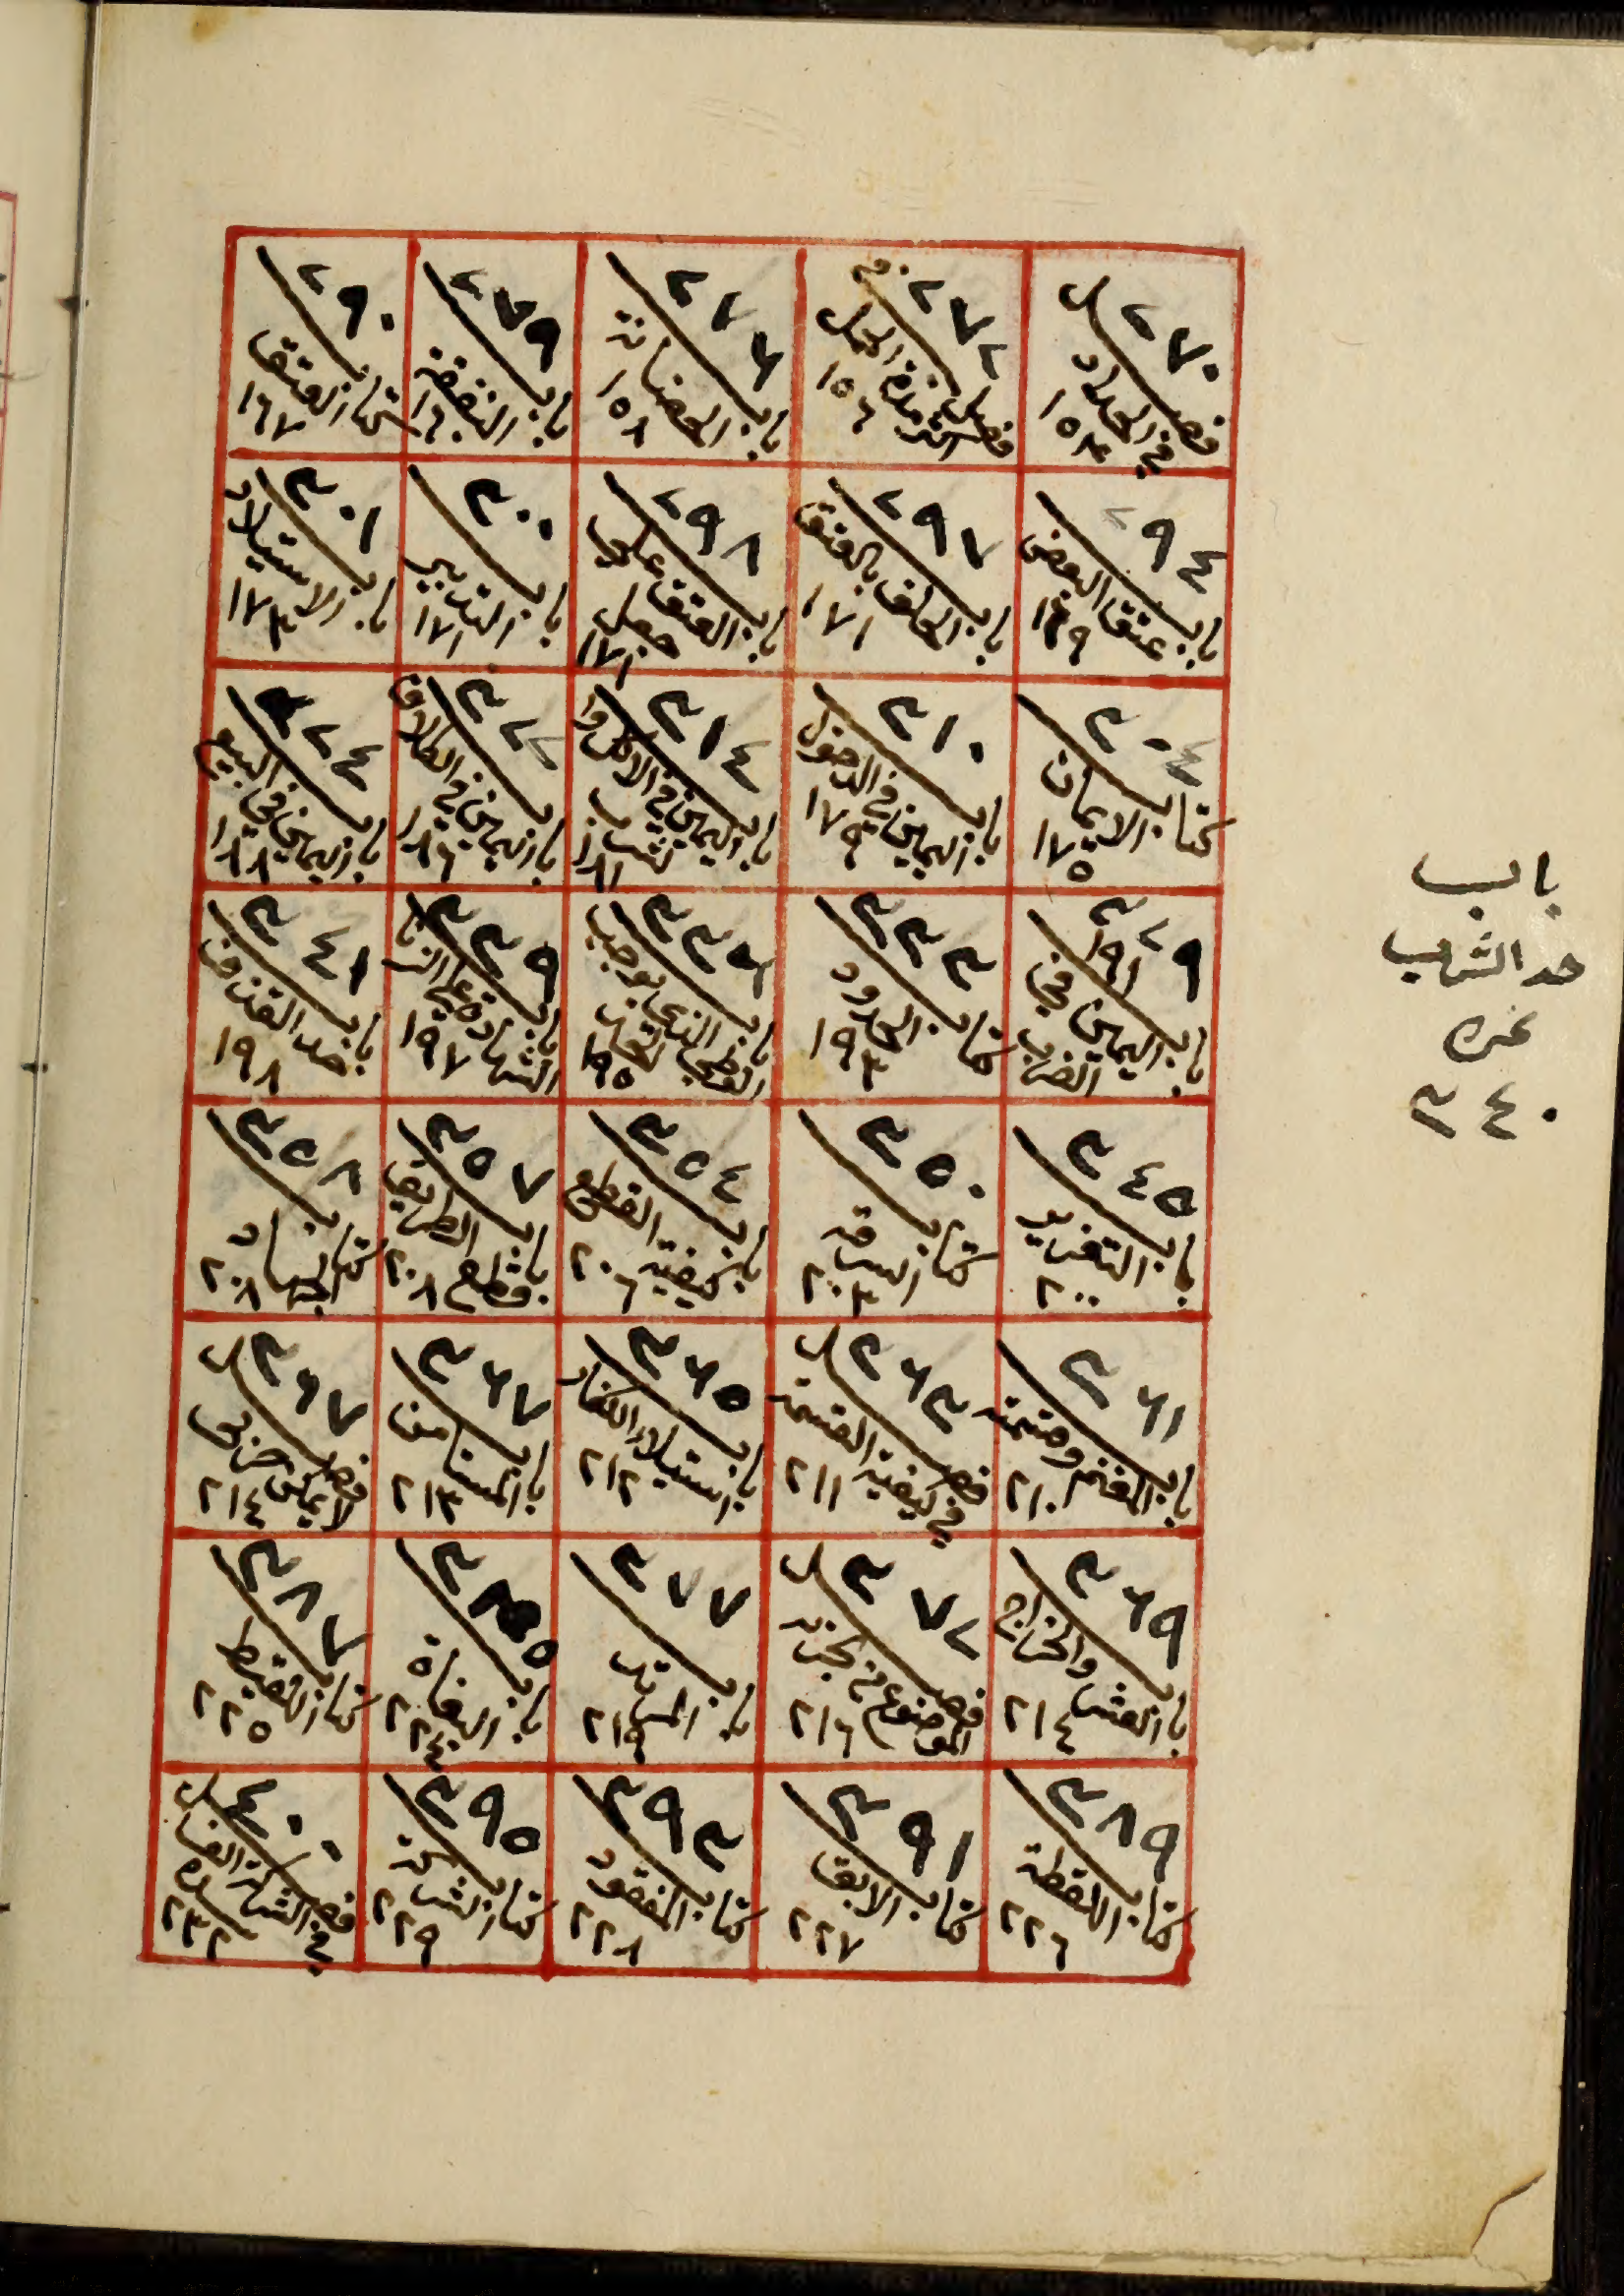 ٢٧٠
فصل
في الحداد
١٥٤
٢٧٢
فصل في
اكثر مدة الحمل
١٥٦
٢٧٦
باب
الحضانة
١٥٨
٢٧٩
باب
النفقة
١٦٠
٢٩٠
كتاب
العتق
١٦٧
٢٩٤
باب
عتق البعض
١٦٩
٢٩٧
باب
الحلف بالعتق
١٧١
٢٩٨
باب
العتق على
جعل
١٧١
٣٠٠
باب
التدبير
١٧١
٣٠١
باب
الاستيلاد
١٧٣
٣٠٤
كتاب
الايمان
١٧٥
٣١٠
باب
اليمين في الدخول
١٧٩
٣١٤
باب
اليمين في الاكل وا
لشرب
١٨١
٣٢٢
باب
اليمين في الطلاق
١٨٦
٣٢٤
باب
اليمين في البيع
١٨٨
٣٢٩
١٩١
باب
اليمين في
الضرب
٣٣٣
كتاب
الحدود
١٩٣
٣٣٦
باب
الوطئ الذي يوجب
١٩٥
٣٣٩
باب
الشهادة على الزنا
١٩٧
٣٤١
باب
حد القذف
١٩٨
٣٤٥
باب
التعزير
٢٠٠
٣٥٠
كتاب
السرقة
٢٠٣
٣٥٤
باب
كيفية القطع
٢٠٦
٣٥٧
باب
قطع الطريق
٢٠٨
٣٥٨
كتاب
الجهاد
٢٠٨
٣٦١
باب
المغنم وقسمته
٢١٠
٣٦٣
فصل
في كيفية القسمة
٢١١
٣٦٥
باب
استيلاء الكفار
٢١٢
٣٦٧
باب
المستامن
٢١٣
٣٦٧
فصل
لا يمكن حربي
٢١٤
٣٦٩
باب
العشر والخراج
٢١٤
٣٧٢
فصل
الموضوع من جزية
٢١٦
٣٧٧
باب
المرتد
٢١٩
باب
البغاة
٢٢٤
٣٨٧
كتاب
اللقيط
٢٢٥
٣٨٩
كتاب
اللقطة
٢٢٦
٣٩١
كتاب
الابق
٢٢٧
٣٩٣
كتاب
المفقود
٢٢٨
٣٩٥
كتاب
الشركة
٢٢٩
٤٠٠
فصل
في الشركة الفاسدة
٢٣٢
باب
حد الشرب
نمرة
٣٤٠